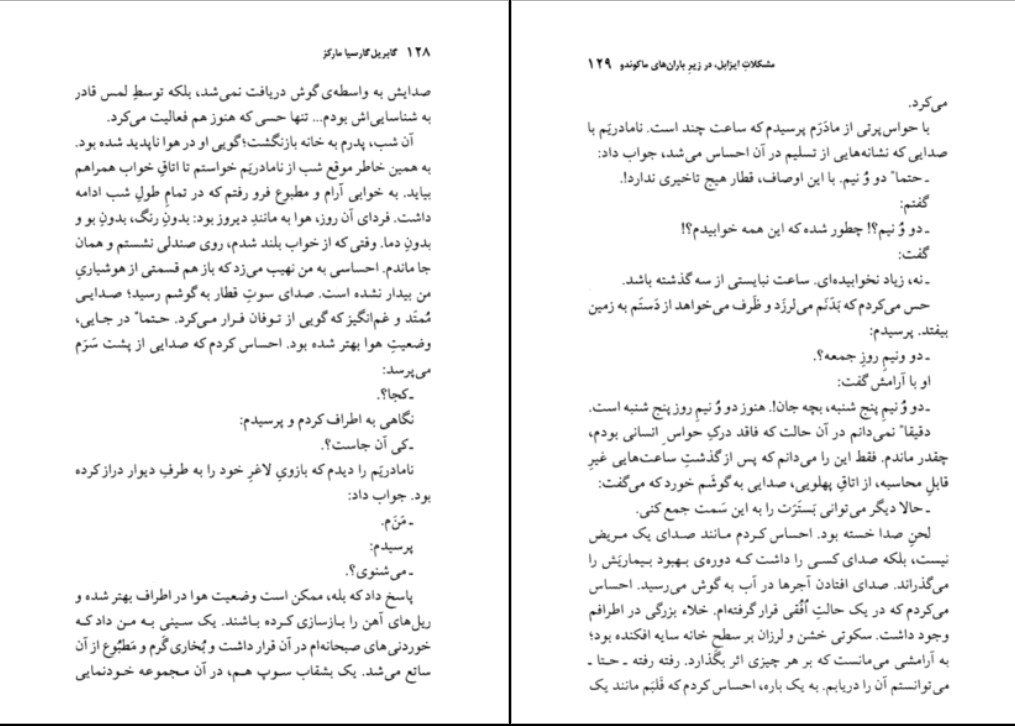 ۱۲۸ گابریل گارسیا مارکز
صدایش به واسطه‌ی گوش دریافت نمی‌شد، بلکه توسطِ لمس قادر
به شناسایی‌اش بودم... تنها حسی که هنوز هم فعالیت می‌کرد.
آن شب، پدرم به خانه بازنگشت؛گویی او در هوا ناپدید شده بود.
به همین خاطر موقع شب از نامادریَم خواستم تا اتاقِ خواب همراهم
بیاید. به خوابی آرام و مطبوع فرو رفتم که در تمامِ طولِ شب ادامه
داشت. فردای آن روز، هوا به مانندِ دیروز بود: بدونِ رنگ، بدونِ بو و
بدونِ دما. وقتی که از خواب بلند شدم، روی صندلی نشستم و همان
جا ماندم. احساسی به من نهیب می‌زد که باز هم قسمتی از هوشیاریِ
من بیدار نشده است. صدای سوتِ قطار به گوشم رسید؛ صدایی
مُمتَد و غم‌انگیز که گویی از توفان فرار می‌کرد. حتماً در جایی،
وضعیتِ هوا بهتر شده بود. احساس کردم که صدایی از پشت سَرَم
می‌پرسد:
ـ کجا؟.
نگاهی به اطراف کردم و پرسیدم:
ـ کی آن جاست؟.
نامادریَم را دیدم که بازویِ لاغرِ خود را به طرفِ دیوار دراز کرده
بود. جواب داد:
ـ مَنَم.
پرسیدم:
ـ می‌شنوی؟.
پاسخ داد که بله، ممکن است وضعیت هوا در اطراف بهتر شده و
ریل‌های آهن را بازسازی کرده باشند. یک سینی به من داد که
خوردنی‌های صبحانه‌ام در آن قرار داشت و بُخاری گرم و مَطبُوع از آن
ساتع می‌شد. یک بشقاب سوپ هم، در آن مجموعه خودنمایی
مشکلاتِ ایزابل، در زیرِ باران‌های ماکوندو ۱۲۹
می‌کرد.
با حواس‌پرتی از مادَرَم پرسیدم که ساعت چند است. نامادریَم با
صدایی که نشانه‌هایی از تسلیم در آن احساس می‌شد، جواب داد:
ـ حتماً دو وُ نیم. با این اوصاف، قطار هیچ تاخیری ندارد!.
گفتم:
ـ دو وُ نیم؟! چطور شده که این همه خوابیدم؟!
گفت:
ـ نه، زیاد نخوابیده‌ای. ساعت نبایستی از سه گذشته باشد.
حس می‌کردم که بَدَنَم می‌لرزَد و ظَرف می‌خواهد از دَستَم به زمین
بیفتد. پرسیدم:
ـ دو ونیمِ روزِ جمعه؟.
او با آرامش گفت:
ـ دو وُ نیمِ پنج شنبه، بچه جان!. هنوز دو وُ نیمِ روز پنج شنبه است.
دقیقاً نمی‌دانم در آن حالت که فاقد درکِ حواسِ انسانی بودم،
چقدر ماندم. فقط این را می‌دانم که پس ازگذشتِ ساعت‌هایی غیرِ
قابلِ محاسبه، از اتاقِ پهلویی، صدایی به گوشَم خورد که می‌گفت:
ـ حالا دیگر می‌توانی بَستَرَت را به این سَمت جمع کنی.
لحنِ صدا خسته بود. احساس کردم مانند صدای یک مریض
نیست، بلکه صدای کسی را داشت که دوره‌ی بهبود بیماریَش را
می‌گذراند. صدای افتادن آجرها در آب به گوش می‌رسید. احساس
می‌کردم که در یک حالتِ اُفُقی قرار گرفته‌ام. خلاء بزرگی در اطرافم
وجود داشت. سکوتی خشن و لرزان بر سطحِ خانه سایه افکنده بود؛
به آرامشی می‌مانست که بر هر چیزی اثر بگذارد. رفته رفته ـ حتا ـ
می‌توانستم آن را دریابم. به یک باره، احساس کردم که قَلبَم مانند یک